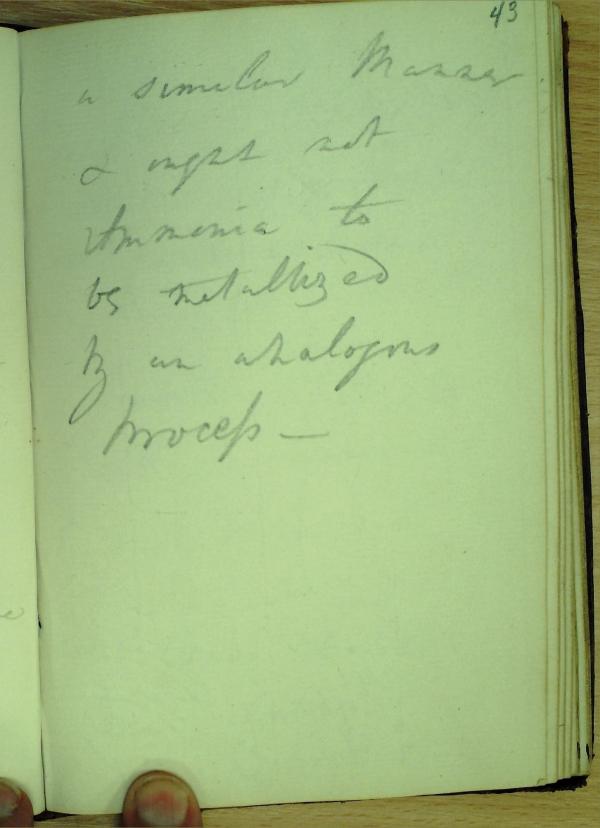 43
a similar Manner
& ought not
Ammonia to
be metallized
by an analogous
process —